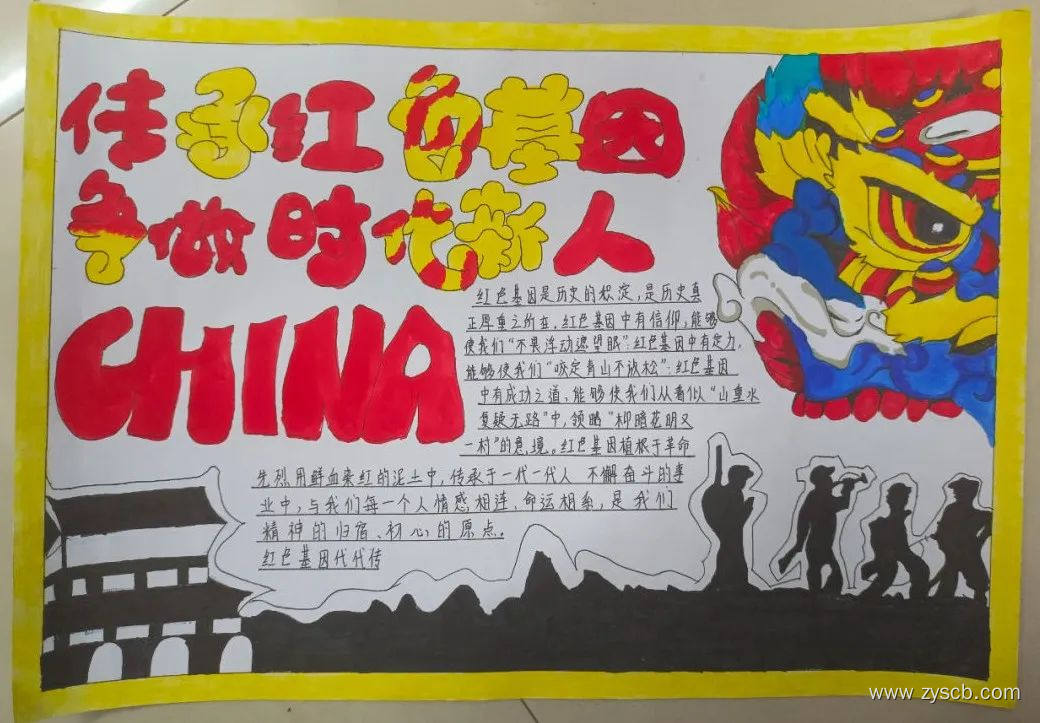 传承红色基因
争做时代新人
CHINA
红色基因是历史的积淀,是历史真
正厚重之所在.红色基因中有信仰,能够
使我们“不畏浮动遮望眼”;红色基因中有定力,
能够使我们“咬定青山不放松”;红色基因
中有成功之道,能够使我们从看似“山重水
复疑无路”中,领略“柳暗花明又
一村”的意境。红色基因植根于革命
先烈用鲜血染红的泥土中,传承于一代一代人 不懈奋斗的事
业中,与我们每一个人情感相连、命运相系,是我们
精神的归宿、初心的原点。
红色基因代代传
www.zyscb.com